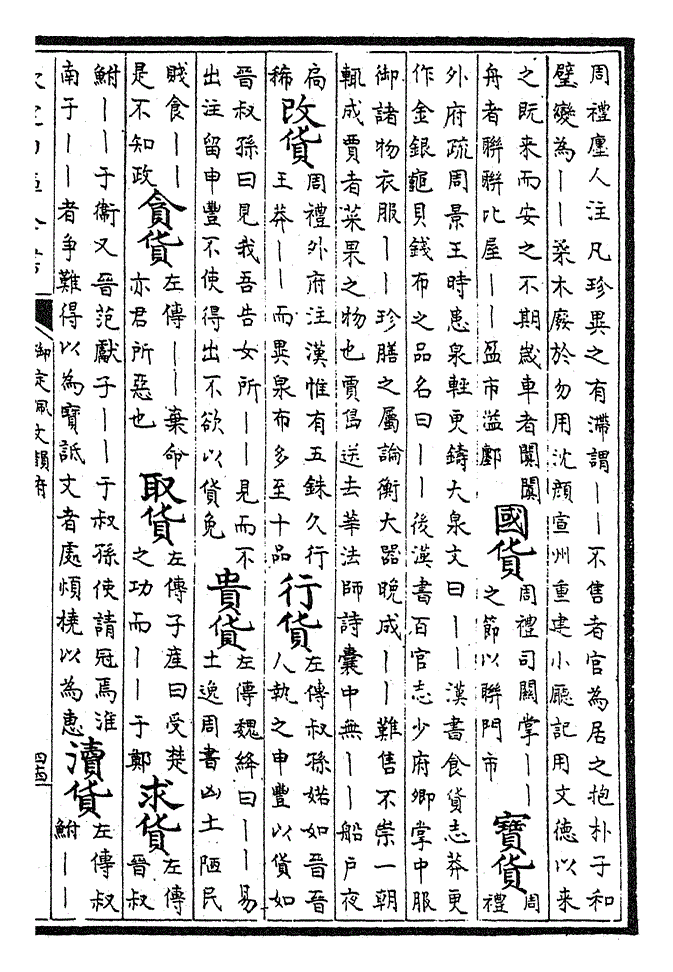 周禮廛人注凡珍異之有滯謂——不售者官為居之抱朴子和
璧變為——梁木廢於勿用沈顏宣州重建小廳記用文德以来
之既来而安之不期歲車者闐闐
舟者聯聯比屋——盈市溢鄽
國貨
周禮司關掌——
之節以聯門市
寶貨
周
禮
外府疏周景王時患泉輕更鑄大泉文曰——漢書食貨志莽更
作金銀龜貝錢布之品名曰——後漢書百官志少府卿掌中服
御諸物衣服——珍膳之屬論衡大器晚成——難售不崇一朝
輒成賈者菜果之物也賈島送去華法師詩囊中無——船戶夜
扃
稀
改貨
周禮外府注漢惟有五銖久行
王莽——而異泉布多至十品
行貨
左傳叔孫婼如晉晉
人執之申豐以貨如
晉叔孫曰見我吾告女所——見而不
出注留申豐不使得出不欲以貨免
貴貨
左傳魏絳曰——易
土逸周書凶土陋民
賤食——
是不知政
貪貨
左傳——棄命
亦君所惡也
取貨
左傳子產曰受楚
之功而——于鄭
求貨
左傳
晉叔
鮒——于衞又晉范獻子——于叔孫使請冠焉淮
南子——者争難得以為寶詆文者處煩橈以為惠
瀆貨
左傳叔
鮒——
御定佩文韻府